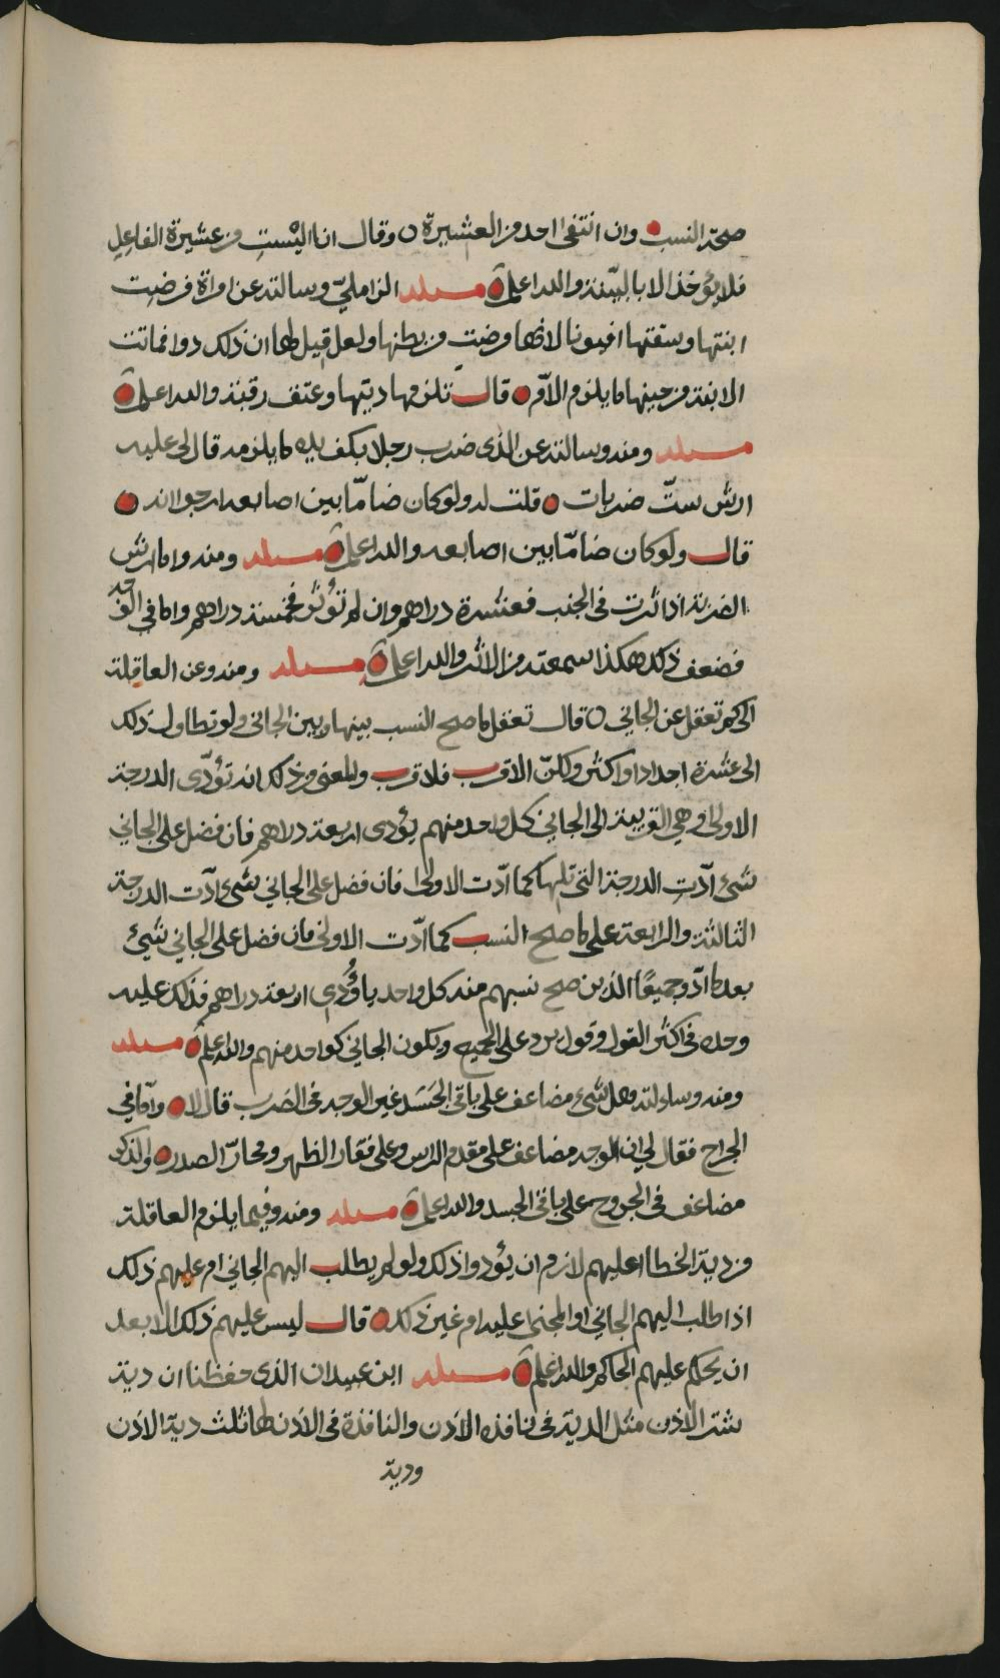 صحة النسب وان انتفى احد من العشيرة ن وقال انا ليست من عشيرة الفاعل
فلا يؤخذ الا بالبينة والله اعلم مسئله الزاملي وسالته عن امراة مرضت
ابنتها وسقتها افيونا لانها مرضت من بطنها ولعل قيل لها ان ذلك دوا فماتت
الابنة من حينها ما يلزم الام قال تلزمها ديتها وعتق رقبة والله اعلم
مسئله ومنه وسالته عن الذى ضرب رجلا بكف يده ما يلزمه قال لى عليه
ارش ستّ ضربات قلت له ولو كان ضامّا بين اصابعه ارجو انه
قال ولو كان ضامّا بين اصابعه والله اعلم مسئله ومنه واما ارش
الضربة اذا اثرت فى الجنب فعشرة دراهم وان لم تؤثر فخمسة دراهم واما فى الوجه
فضعف ذلك هكذا سمعته من الاثر والله اعلم مسئله ومنه وعن العاقلة
الى كم تعقل عن الجانى ن قال تعقل ما صح النسب بينها وبين الجانى ولو تطاول ذلك
الى عشرة اجدادا واكثر ولكن الاقرب فلاقرب والمعنى من ذلك انه تؤدّى الدرجة
الاولى وهي القريبة الى الجاني كل واحد منهم يؤدى اربعة دراهم فان فضل على الجاني
شئ ادّت الدرجة التى تليها كما ادّت الاولى فان فضل على الجاني شئ ادّت الدرجة
الثالثة والرابعة على ما صح النسب كما ادّت الاولى فان فضل على الجاني شئ
بعد ما ادّو جميعًا الذين صح نسبهم منه كل واحد يا ؤدي اربعة دراهم فذلك عليه
وحده فى اكثر القول وقول يرد على الجميع ويكون الجاني كواحد منهم والله اعلم مسئله
ومنه وساءلته وهل شئ مضاعف على باقى الجسد غير الوجه فى الضرب قال لا وامّا في
الجراح فقال لي ان الوجه مضاعف على مقدم الراس وعلى فقار الظهر ومحارّ الصدره والذكر
مضاعف فى الجروح على باقى الجسد والله اعلم مسئله ومنه وفيما يلزم العاقلة
من دية الخطا اعليهم لازم ان يؤدوا ذلك ولو لم يطلب اليهم الجاني ام عليهم ذلك
اذا طلب اليهم الجاني او المجنى عليه ام غير ذلك قال ليس عليهم ذلك الا بعد
ان يحكم عليهم الحاكم والله اعلم مسئله ابن عبيدان الذى حفظنا ان دية
شتر الاذن مثل الدية فى نافذه الاذن والنافذة فى الاذن لها ثلث دية الاذن
ودية